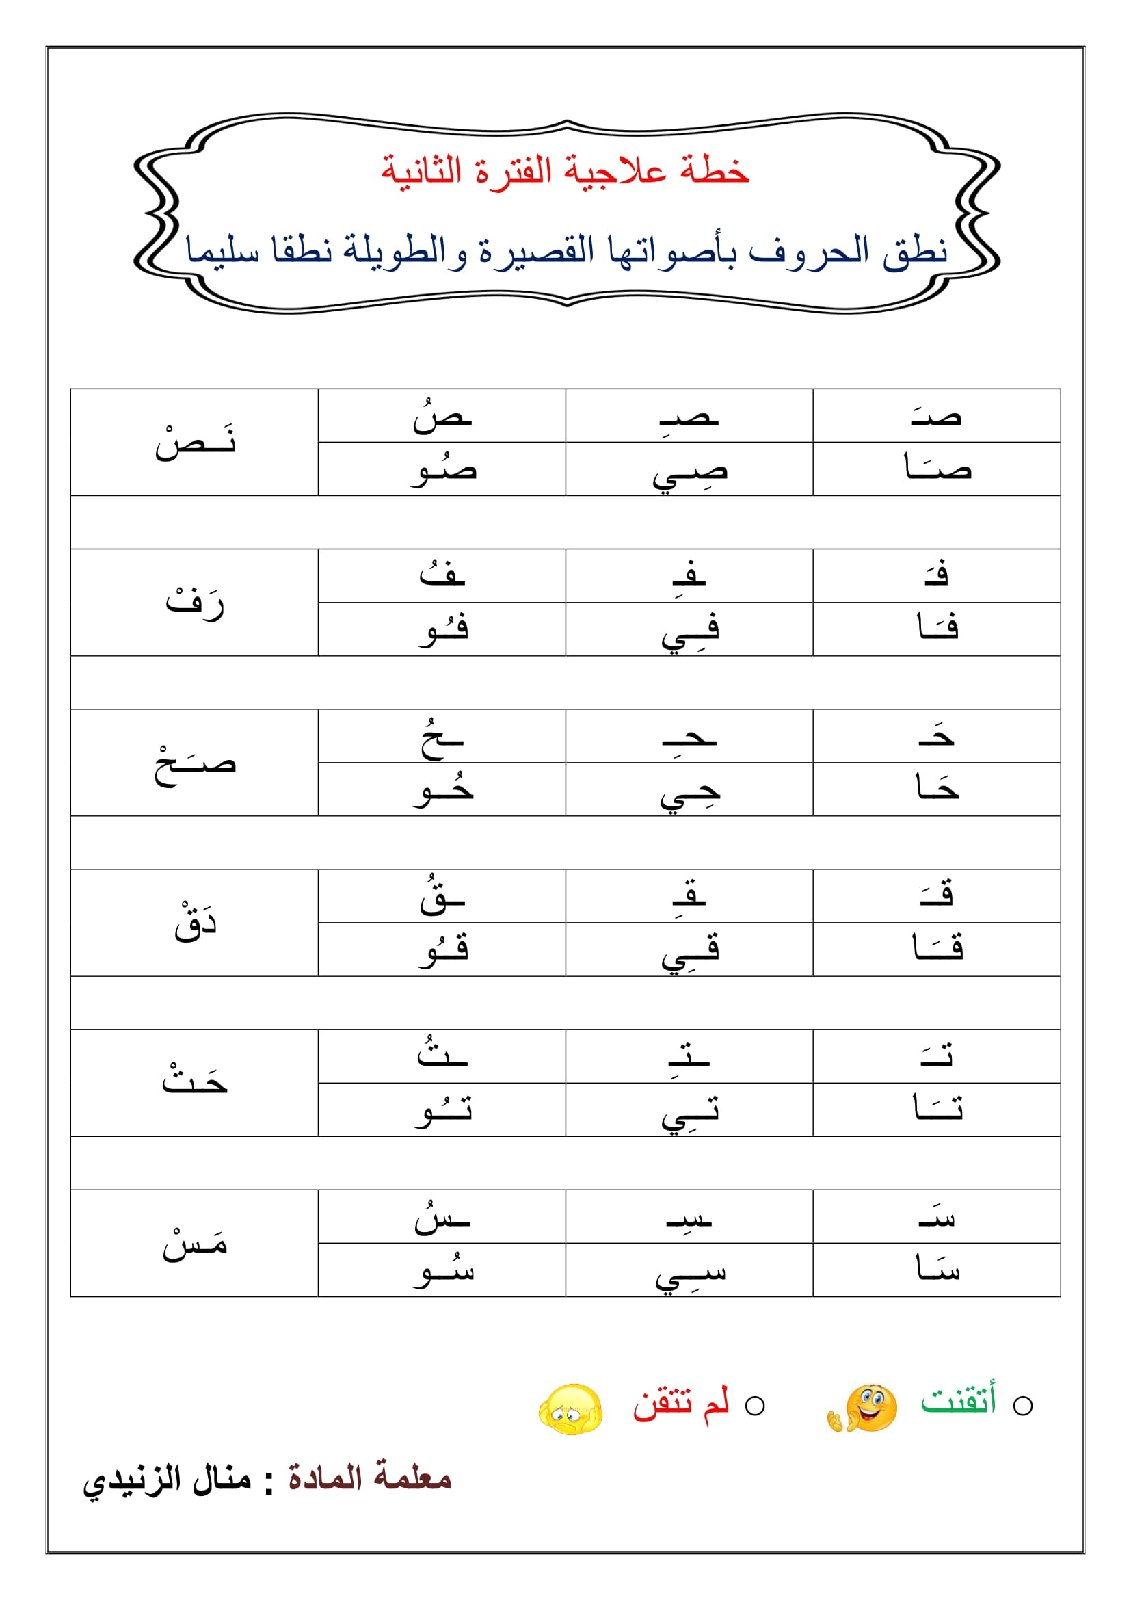 خطة علاجية الفترة الثانية
نطق الحروف بأصواتها القصيرة والطويلة نطقا سليما
صـَ ـصـِ ـصُ نَــصْ
صـَـا صِــي صُـو
فـَ ـفـِ ـفُ رَفْ
فـَـا فـِـي فـُـو
حَـ ـحـِـ ـحُ صـَـحْ
حَـا حِـي حُــو
قـَـ ـقـِ ـقُ دَقْ
قـَــا قــِي قـُـو
تـَـ ـتـِ ـتُ حَـتْ
تـَــا تــِي تـُـو
سَـ ـسِـ ـسُ مَـسْ
سَـا ســِي سُــو
○ أتقنت ○ لم تتقن
معلمة المادة : منال الزنيدي